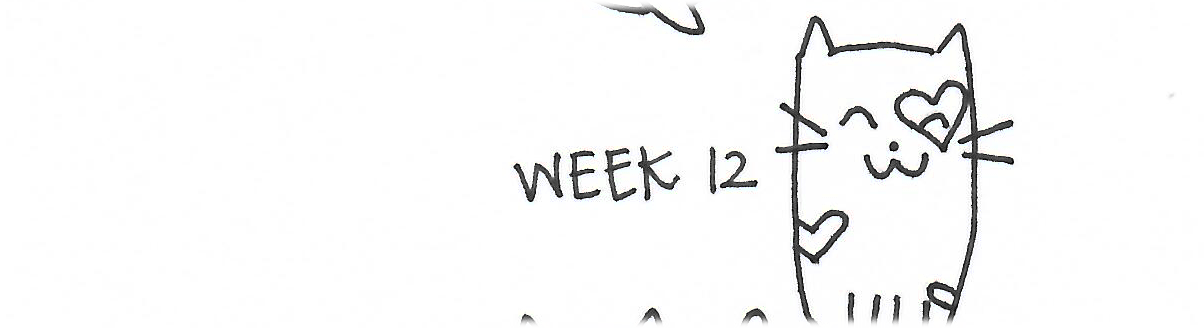 WEEK 12